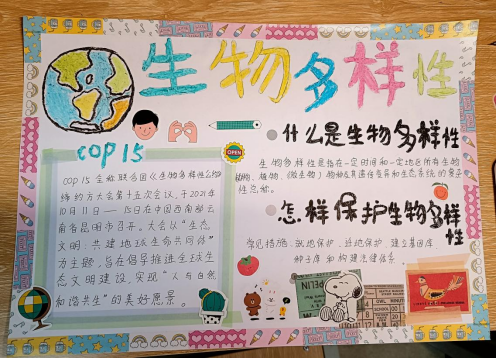 生物多样性
COP15
COP 15 全称联合国《生物多样性公约》
缔约方大会第十五次会议,于2021年
10月11日—15日在中国西南部云
南省昆明市召开。大会以“生态
文明:共建地球生命共同体”
为主题,旨在倡导推进全球生
态文明建设,实现“人与自然
和谐共生”的美好愿景。
OPEN
什么是生物多样性
生物多样性是指在一定时间和一定地区所有生物
(动物、植物、微生物)物种及其遗传变异和生态系统的复杂
性总称。
怎样保护生物多样性
常见措施:就地保护、迁地保护、建立基因库、
种子库和构建法律体系。